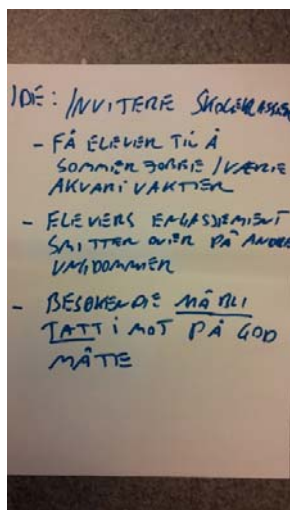 IDÉ: INVITERE SKOLEKLASSER
- FÅ ELEVER TIL Å
SOMMERJOBBE / VÆRE
AKVARIVAKTER
- ELEVERS ENGASJEMENT
SMITTER OVER PÅ ANDRE
UNGDOMMER
- BESØKENDE MÅ BLI
TATT I MOT PÅ GOD
MÅTE